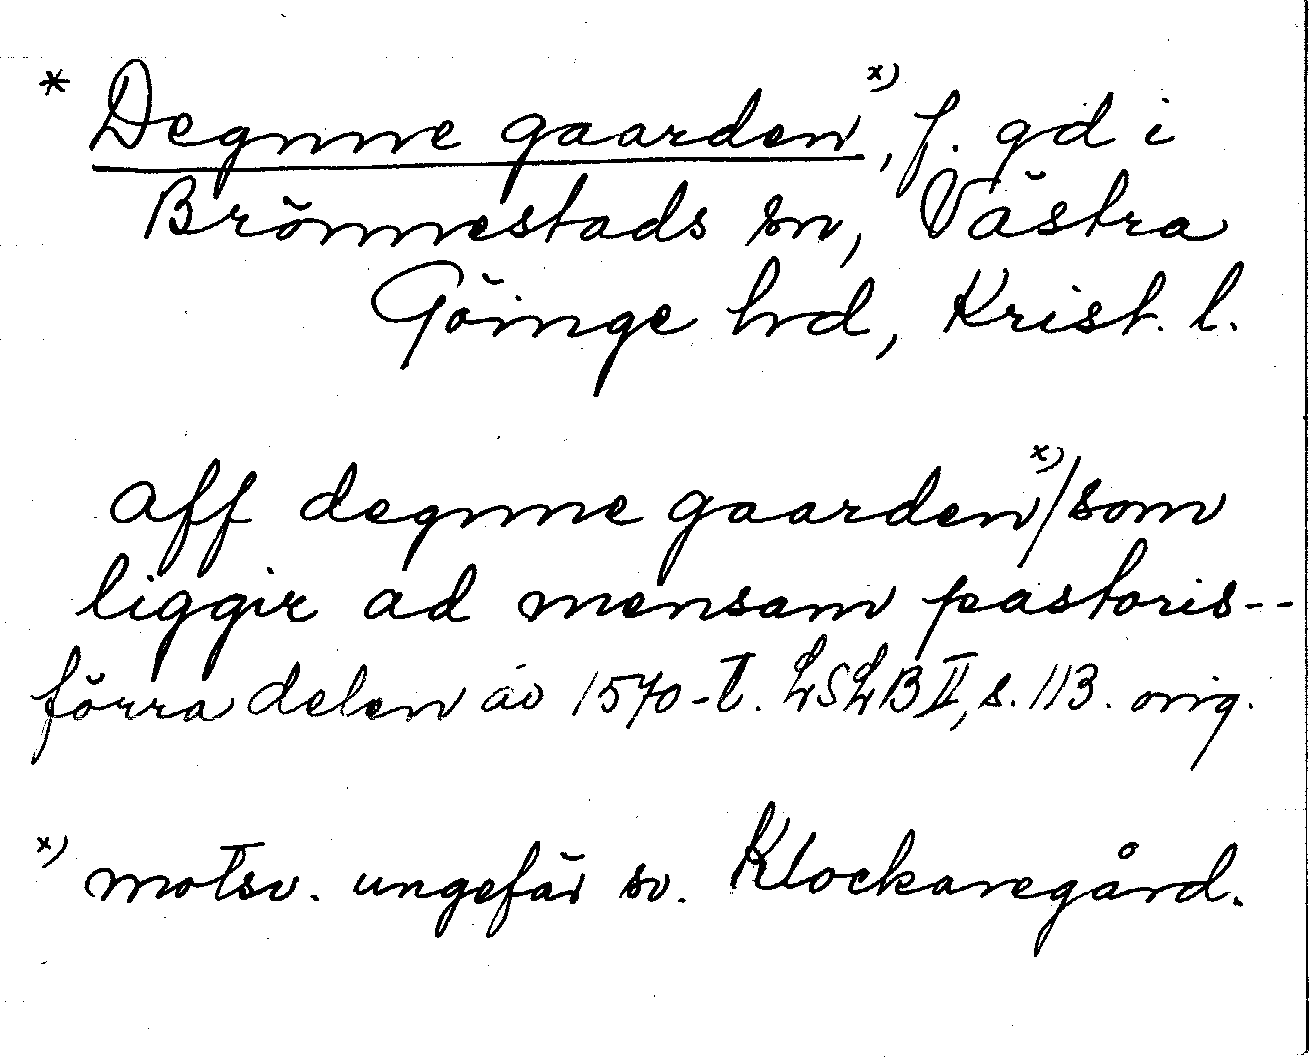 * Degnne gaarden x), f. gd i
Brönnestads sn, Västra
Göinge hd, Krist. l.
aff degnne gaarden x)/som
liggir ad mensam pastoris--
förra delen av 1570-t. LSLB II, s. 113. orig.
x) motsv. ungefär sv. Klockaregård.